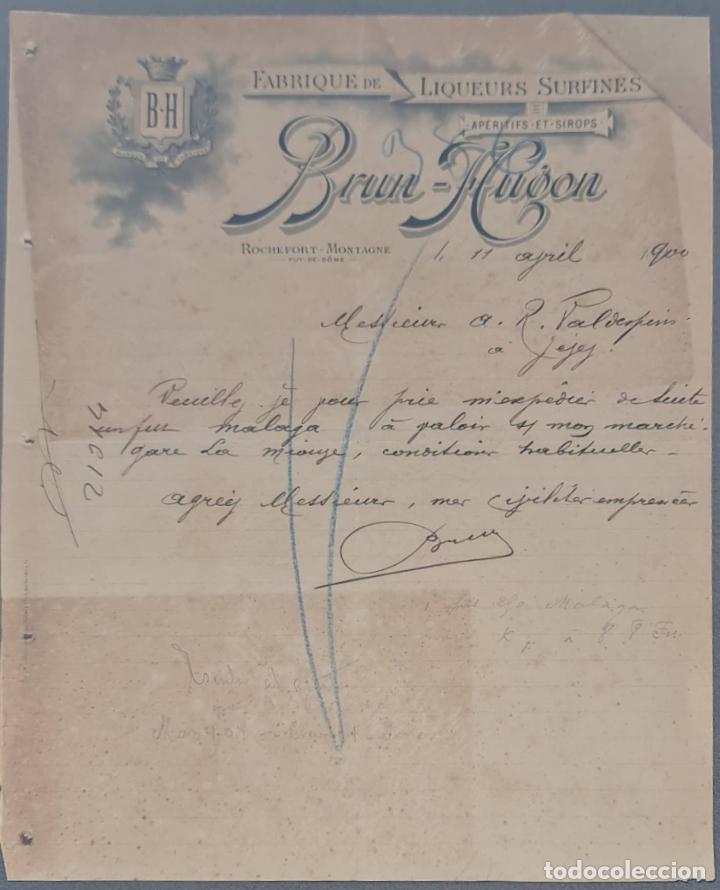 B·H
FABRIQUE DE LIQUEURS SURFINES
APÉRITIFS·ET·SIROPS
Brun-Hugon
ROCHEFORT-MONTAGNE
PUY-DE-DÔME
11 april 1900
Messieurs A. R. Valdespino
à Jerez
Veuillez je vous prie m'expédier de suite
un fut malaga à valoir s/ mon marché
gare La Miouze, conditions habituelles
Agréez Messieurs, mes civilités empressées
Brun
Malaga
todocoleccion